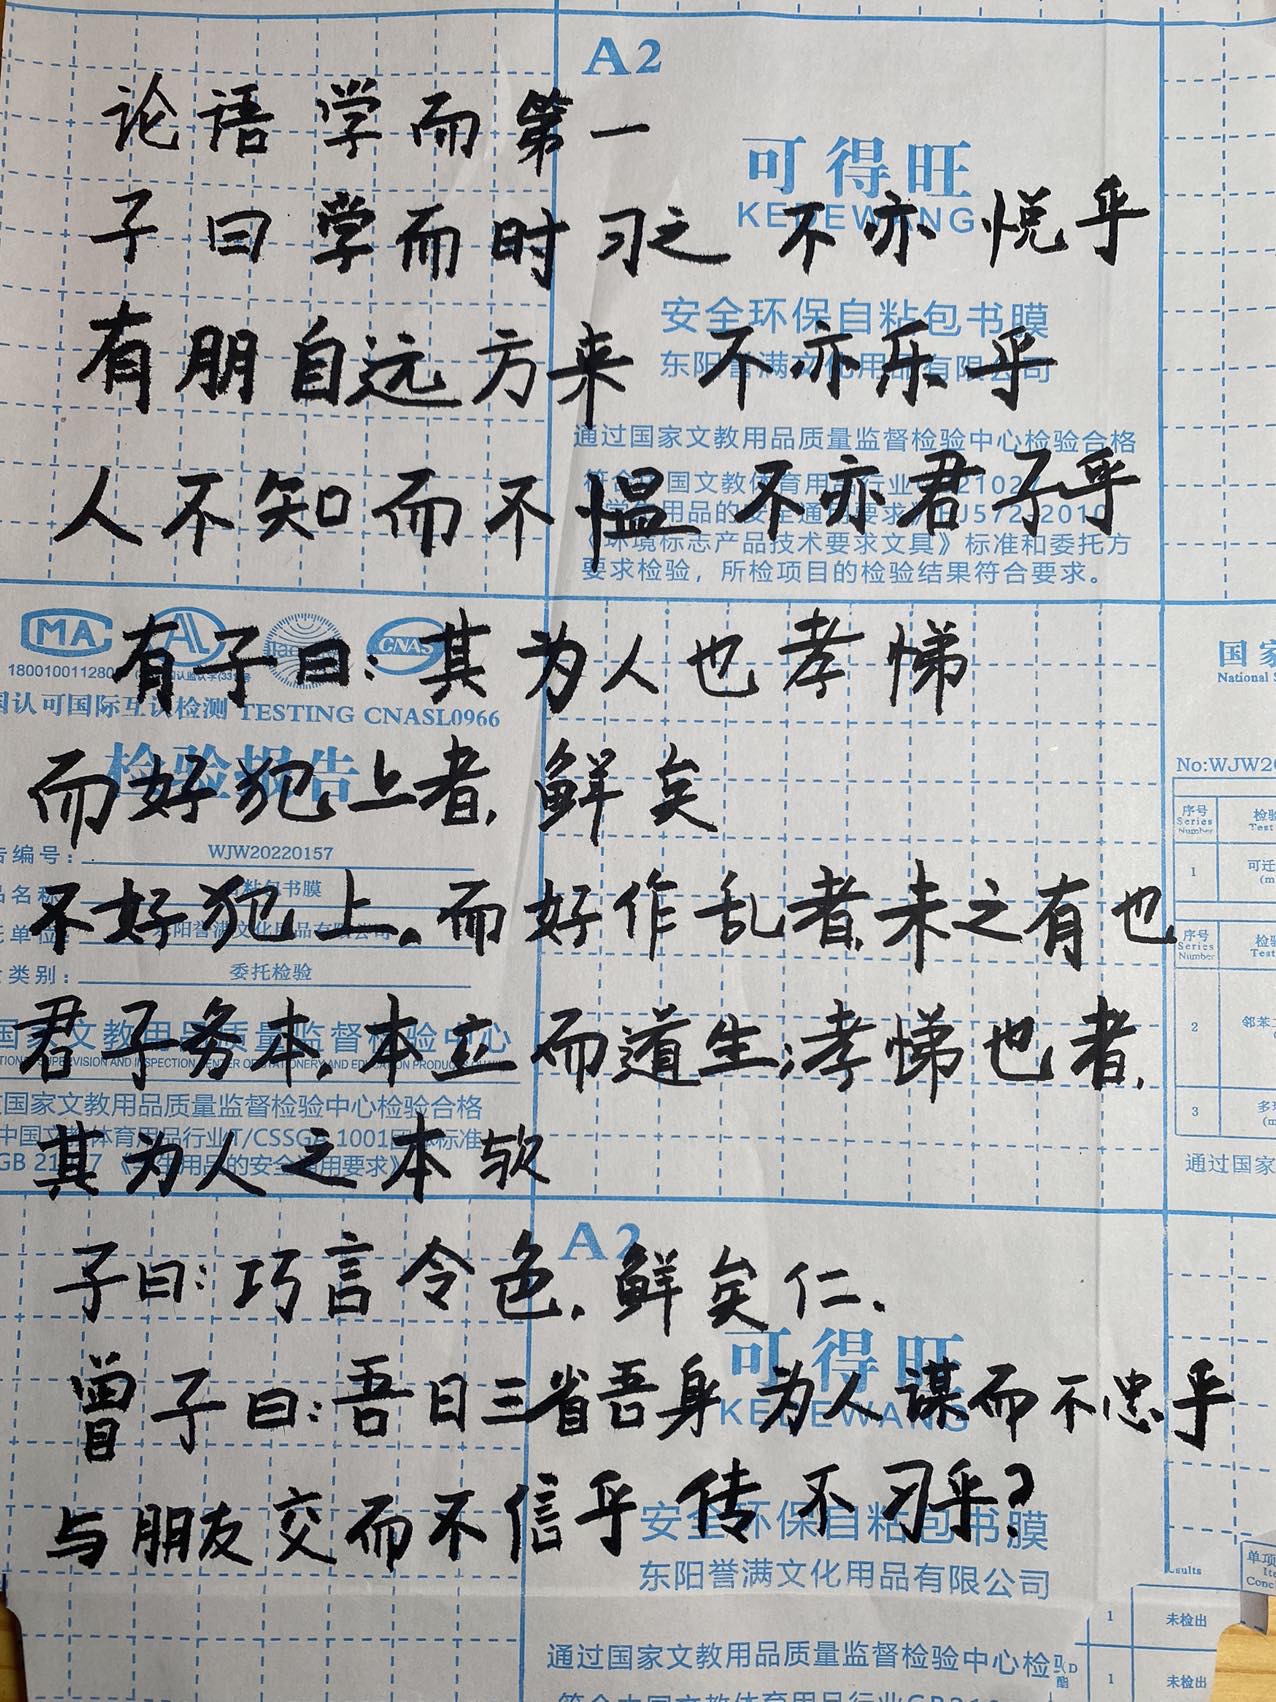 A2
论语学而第一
可得旺
KEDEWANG
子曰学而时习之 不亦悦乎
安全环保自粘包书膜
有朋自远方来 不亦乐乎
东阳誉满文化用品有限公司
通过国家文教用品质量监督检验中心检验合格
人不知而不愠 不亦君子乎
《环境标志产品技术要求文具》标准和委托方
要求检验，所检项目的检验结果符合要求。
MA
CNAS
180010011280
有子曰:其为人也孝悌
国家
National S
国认可国际互认检测 TESTING CNASL0966
检验报告
而好犯上者,鲜矣
No:WJW20
序号 检验
Series Test
Number
告编号: WJW20220157
1 可迁
(m
品名称 自粘包书膜
不好犯上。而好作乱者,未之有也
样单位: 东阳誉满文化用品有限公司
序号 检验
Series Test
Number
类别: 委托检验
国家文教用品质量监督检验中心
君子务本,本立而道生;孝悌也者,
2 邻苯二
过国家文教用品质量监督检验中心检验合格
3 多环
(m
中国文教体育用品行业T/CSSGA 1001团体标准
其为人之本欤
通过国家
A2
子曰:巧言令色,鲜矣仁.
可得旺
KEDEWANG
曾子曰:吾日三省吾身 为人谋而不忠乎
与朋友交而不信乎 传不习乎?
安全环保自粘包书膜
东阳誉满文化用品有限公司
esults
单项
Ite
Conc
1 未检出
通过国家文教用品质量监督检验中心检验
1 未检出